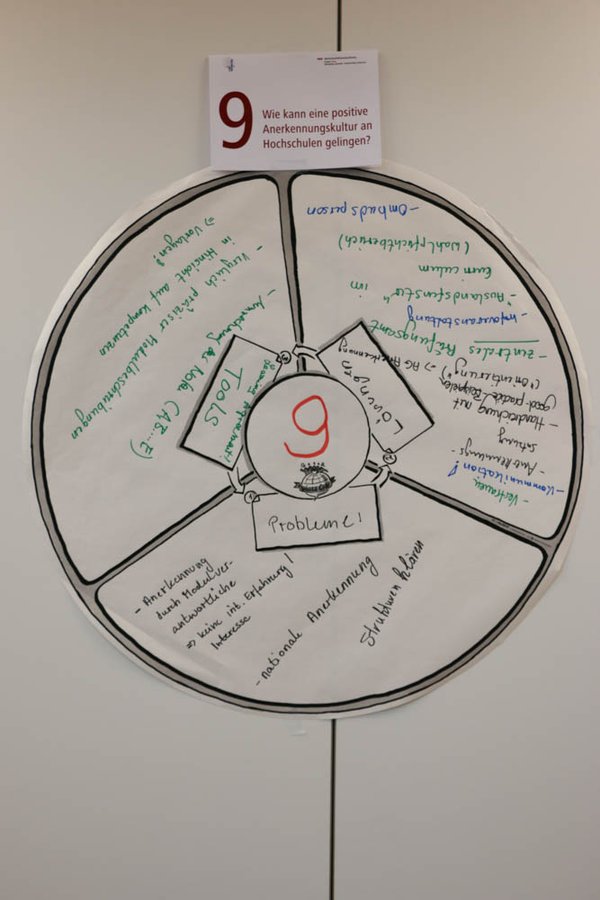 9
Wie kann eine positive
Anerkennungskultur an
Hochschulen gelingen?
- Ombudsperson
- "Auslandsfenster" im
Curriculum
(Wahlpflichtbereich)
- Infoveranstaltung
- zentrales Prüfungsamt
- Handreichung mit
good-practice-Beispielen
("Orientierung")
- Anerkennungs-
satzung
- Kommunikation!
- Vertrauen
Lösungen
=> AG Anerkennung
TOOLS
- Vergleich präziser Modulbeschreibungen
in Hinsicht auf Kompetenzen
=> Vorlagen!
- Anrechnung der Note (A, B...E)
9
Probleme!
- Anerkennung
durch Modulver-
antwortliche
=> keine int. Erfahrung!
Interesse
- nationale Anerkennung
Strukturen klären